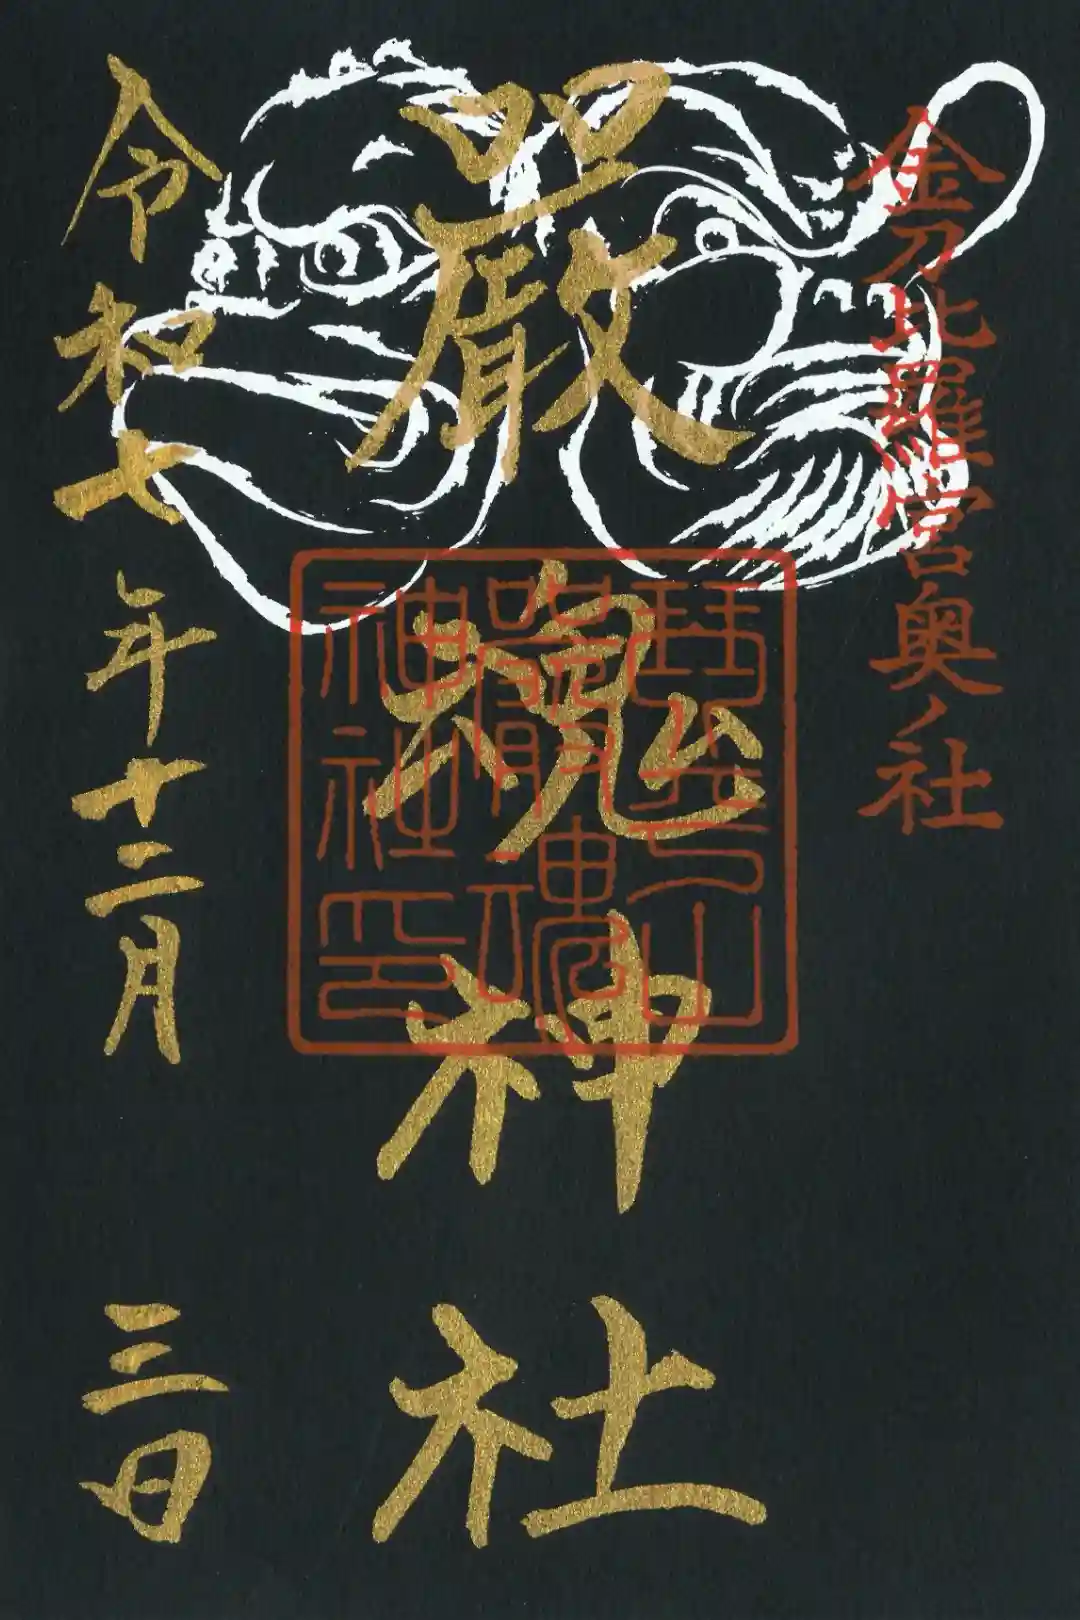 金刀比羅宮奥ノ社
嚴魂神社
琴平山
嚴魂
神社印
令和七年十二月三日